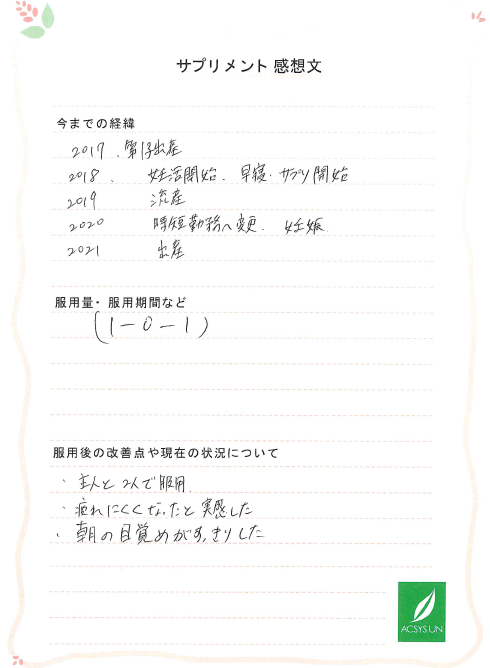 サプリメント 感想文
今までの経緯
2017 . 第1子出産
2018 . 妊活開始. 早寝・サプリ開始
2019 流産
2020 時短勤務へ変更. 妊娠
2021 出産
服用量・服用期間など
(1-0-1)
服用後の改善点や現在の状況について
・主人と2人で服用.
・疲れにくくなったと実感した
・朝の目覚めがすっきりした
ACSYSUN